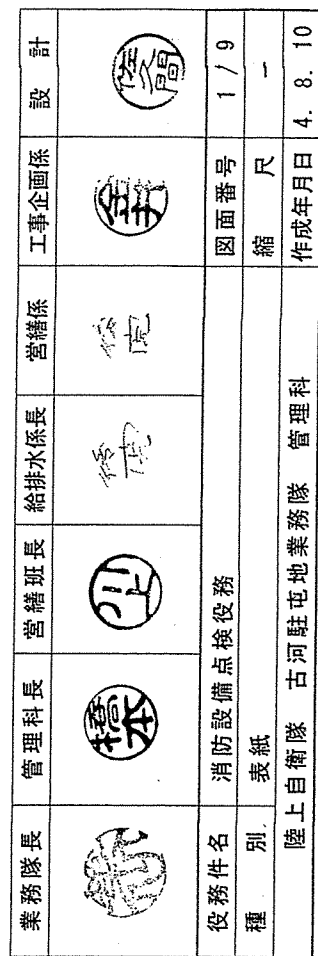 業務隊長 管理科長 営繕班長 給排水係長 営繕係 工事企画係 設計
役務件名 消防設備点検役務 図面番号 1/9
種別 表紙 縮尺 −
陸上自衛隊 古河駐屯地業務隊 管理科 作成年月日 4.8.10